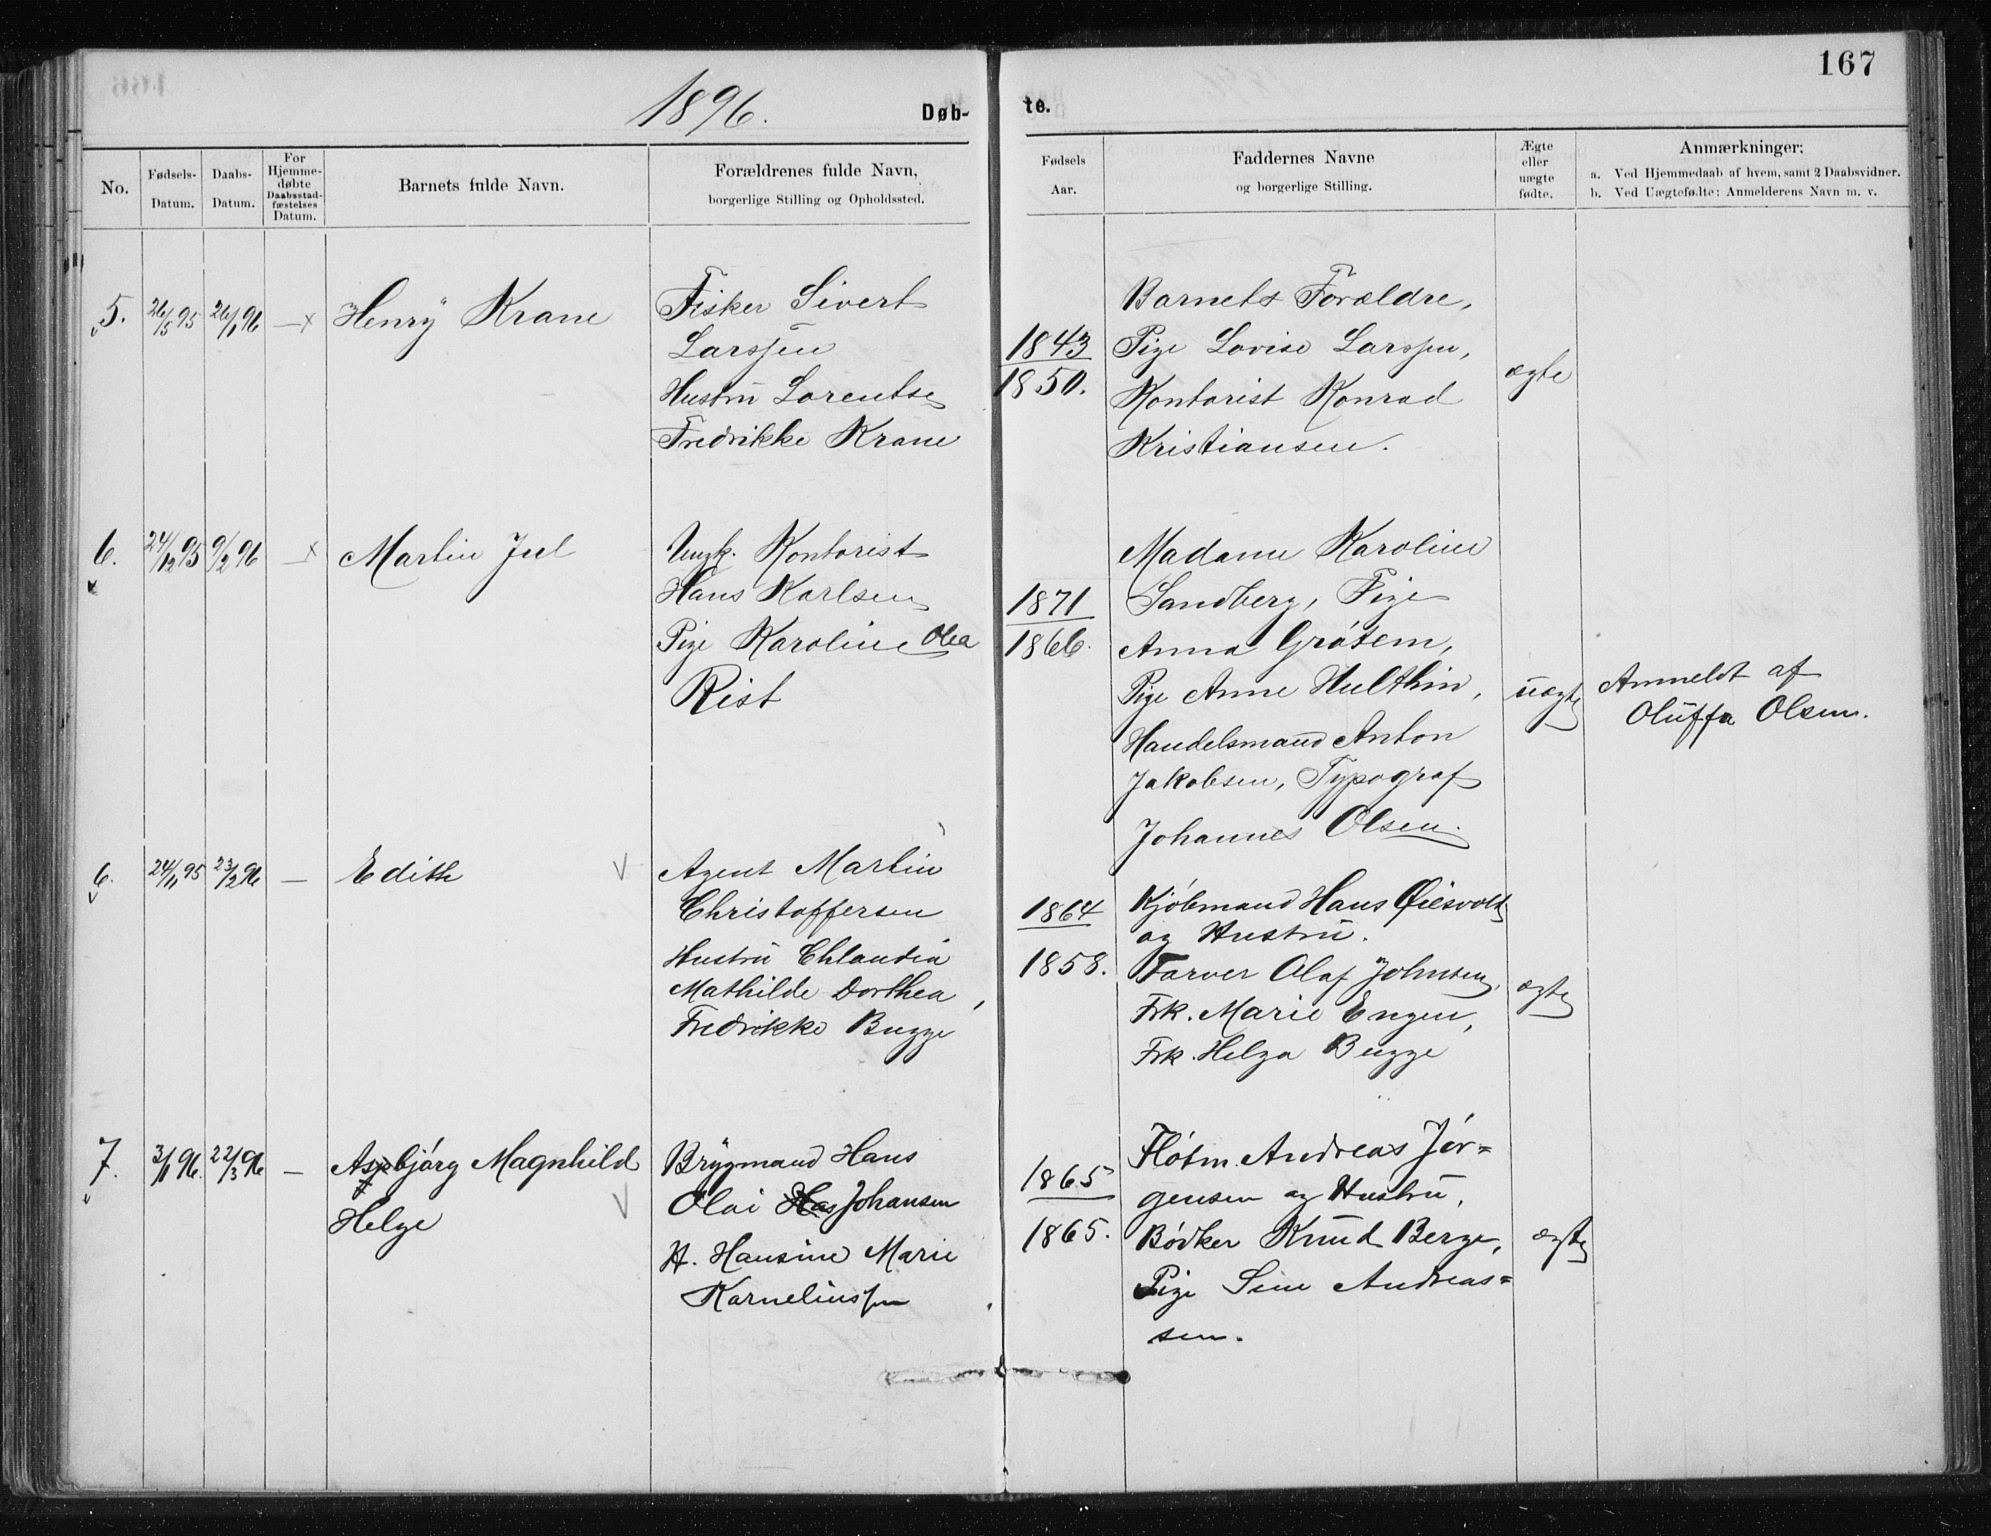 167
1896.
Døb-
te.
No.
Fødsels-
Datum.
Daabs-
Datum.
For
Hjemme-
døbte
Daabsstad-
fæstelses
Datum.
Barnets fulde Navn.
Forældrenes fulde Navn,
borgerlige Stilling og Opholdssted.
Fødsels
Aar.
Faddernes Navne
og borgerlige Stilling.
Ægte
eller
uægte
fødte.
Anmærkninger:
a. Ved Hjemmedaab af hvem, samt 2 Daabsvidner.
b. Ved Uægtefødte: Anmelderens Navn m. v.
5.
26/5 95
26/1 96
—x
Henry Krane
Fisker Sivert
Larssen
Hustru Lorentse
Fredrikke Krane
1843
1850.
Barnets Forældre,
Pige Lovise Larssen,
Kontorist Konrad
Kristiansen.
ægte
6.
24/12 95
9/2 96
—x
Martin Juel
Ungk. Kontorist
Hans Karlsen
Pige Karoline Olea
Rist
1871
1866.
Madame Karoline
Sandberg, Pige
Anna Grötem,
Pige Anne Hulthin,
Handelsmand Anton
Jakobsen, Typograf
Johannes Olsen.
uægte
Anmeldt af
Oluffa Olsen.
6.
24/11 95
23/2 96
—
Edith
Agent Martin
Christoffersen
Hustru Chlaudia
Mathilde Dorthea,
Fredrikke Bugge
1864
1858.
Kjöbmand Hans Øiesvold
og Hustru.
Farver Olaf Johnsen,
Frk. Marie Engen,
Frk. Helga Bugge
ægte
7.
3/1 96.
22/3 96
—
Asbjörg Magnhild
Helge
Brygmand Hans
Olai Johansen
H. Hansine Marie
Karneliussen
1865
1865.
Flötm. Andreas Jör=
gensen og Hustru,
Bödker Knud Berge,
Pige Sine Andreas=
sen.
ægte